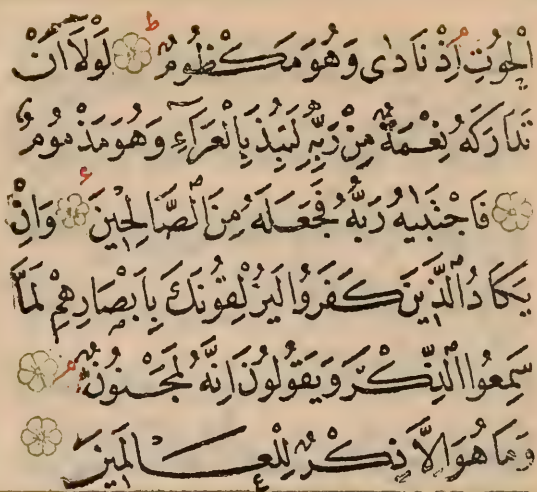 الْحُوتِ اِذْ نَادٰى وَهُوَ مَكْظُومٌ ط لَوْلَٓا اَنْ
تَدَارَكَهُ نِعْمَةٌ مِنْ رَبِّهٖ لَنُبِذَ بِالْعَرَٓاءِ وَهُوَ مَذْمُومٌ
فَاجْتَبٰيهُ رَبُّهُ فَجَعَلَهُ مِنَ الصَّالِحٖينَ وَاِنْ
يَكَادُ الَّذٖينَ كَفَرُوا لَيُزْلِقُونَكَ بِاَبْصَارِهِمْ لَمَّا
سَمِعُوا الذِّكْرَ وَيَقُولُونَ اِنَّهُ لَمَجْنُونٌ م
وَمَا هُوَ اِلَّا ذِكْرٌ لِلْعَالَمٖينَ